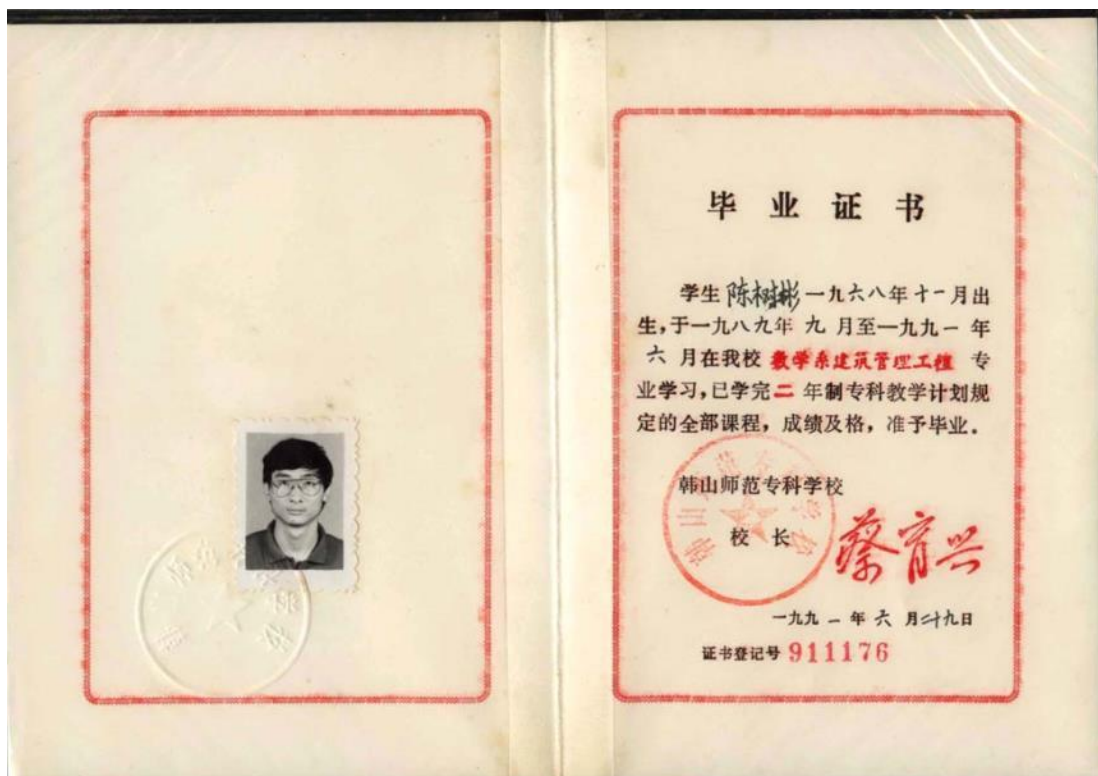 毕业证书
学生陈树彬一九六八年十一月出
生,于一九八九年九月至一九九一年
六月在我校数学系建筑管理工程专
业学习,已学完二年制专科教学计划规
定的全部课程,成绩及格,准予毕业.
韩山师范专科学校
校长
蔡育兴
一九九一年六月二十九日
证书登记号 911176
韩山师范专科学校